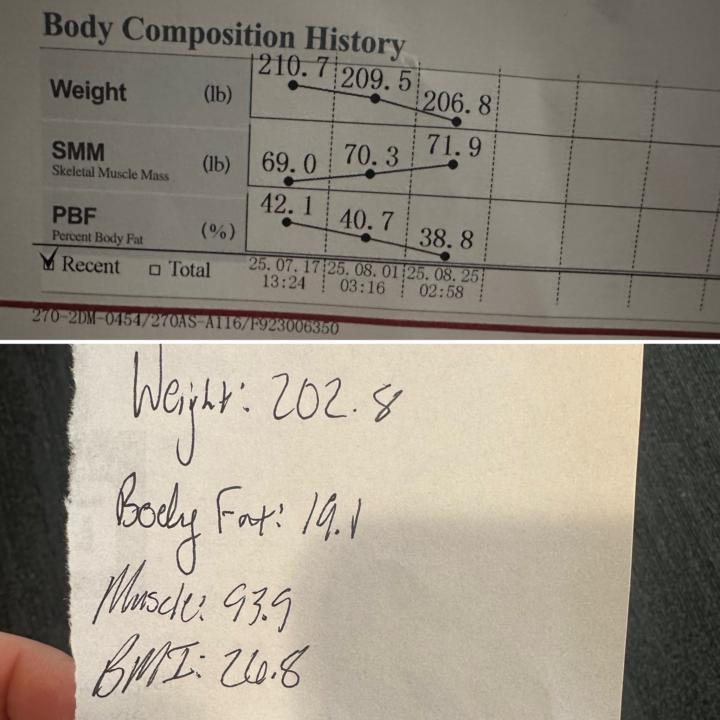 Body Composition History
Weight (lb) 210.7 209.5 206.8
SMM
Skeletal Muscle Mass (lb) 69.0 70.3 71.9
PBF
Percent Body Fat (%) 42.1 40.7 38.8
Recent Total 25.07.17 25.08.01 25.08.25
13:24 03:16 02:58
270-2DM-0454/270AS-A116/F923006350
Weight: 202.8
Body Fat: 19.1
Muscle: 93.9
BMI: 26.8